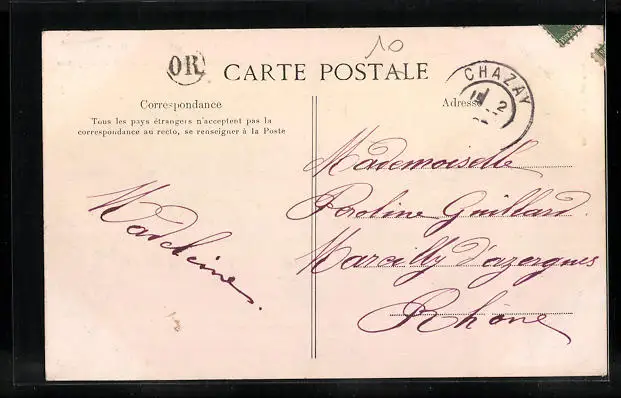 10
OR
CARTE POSTALE
CHAZAY
2
Correspondance
Tous les pays étrangers n'acceptent pas la
correspondance au recto, se renseigner à la Poste
Adresse
Mademoiselle
Guilland
Marcilly d'azergues
Rhône
Madeleine.